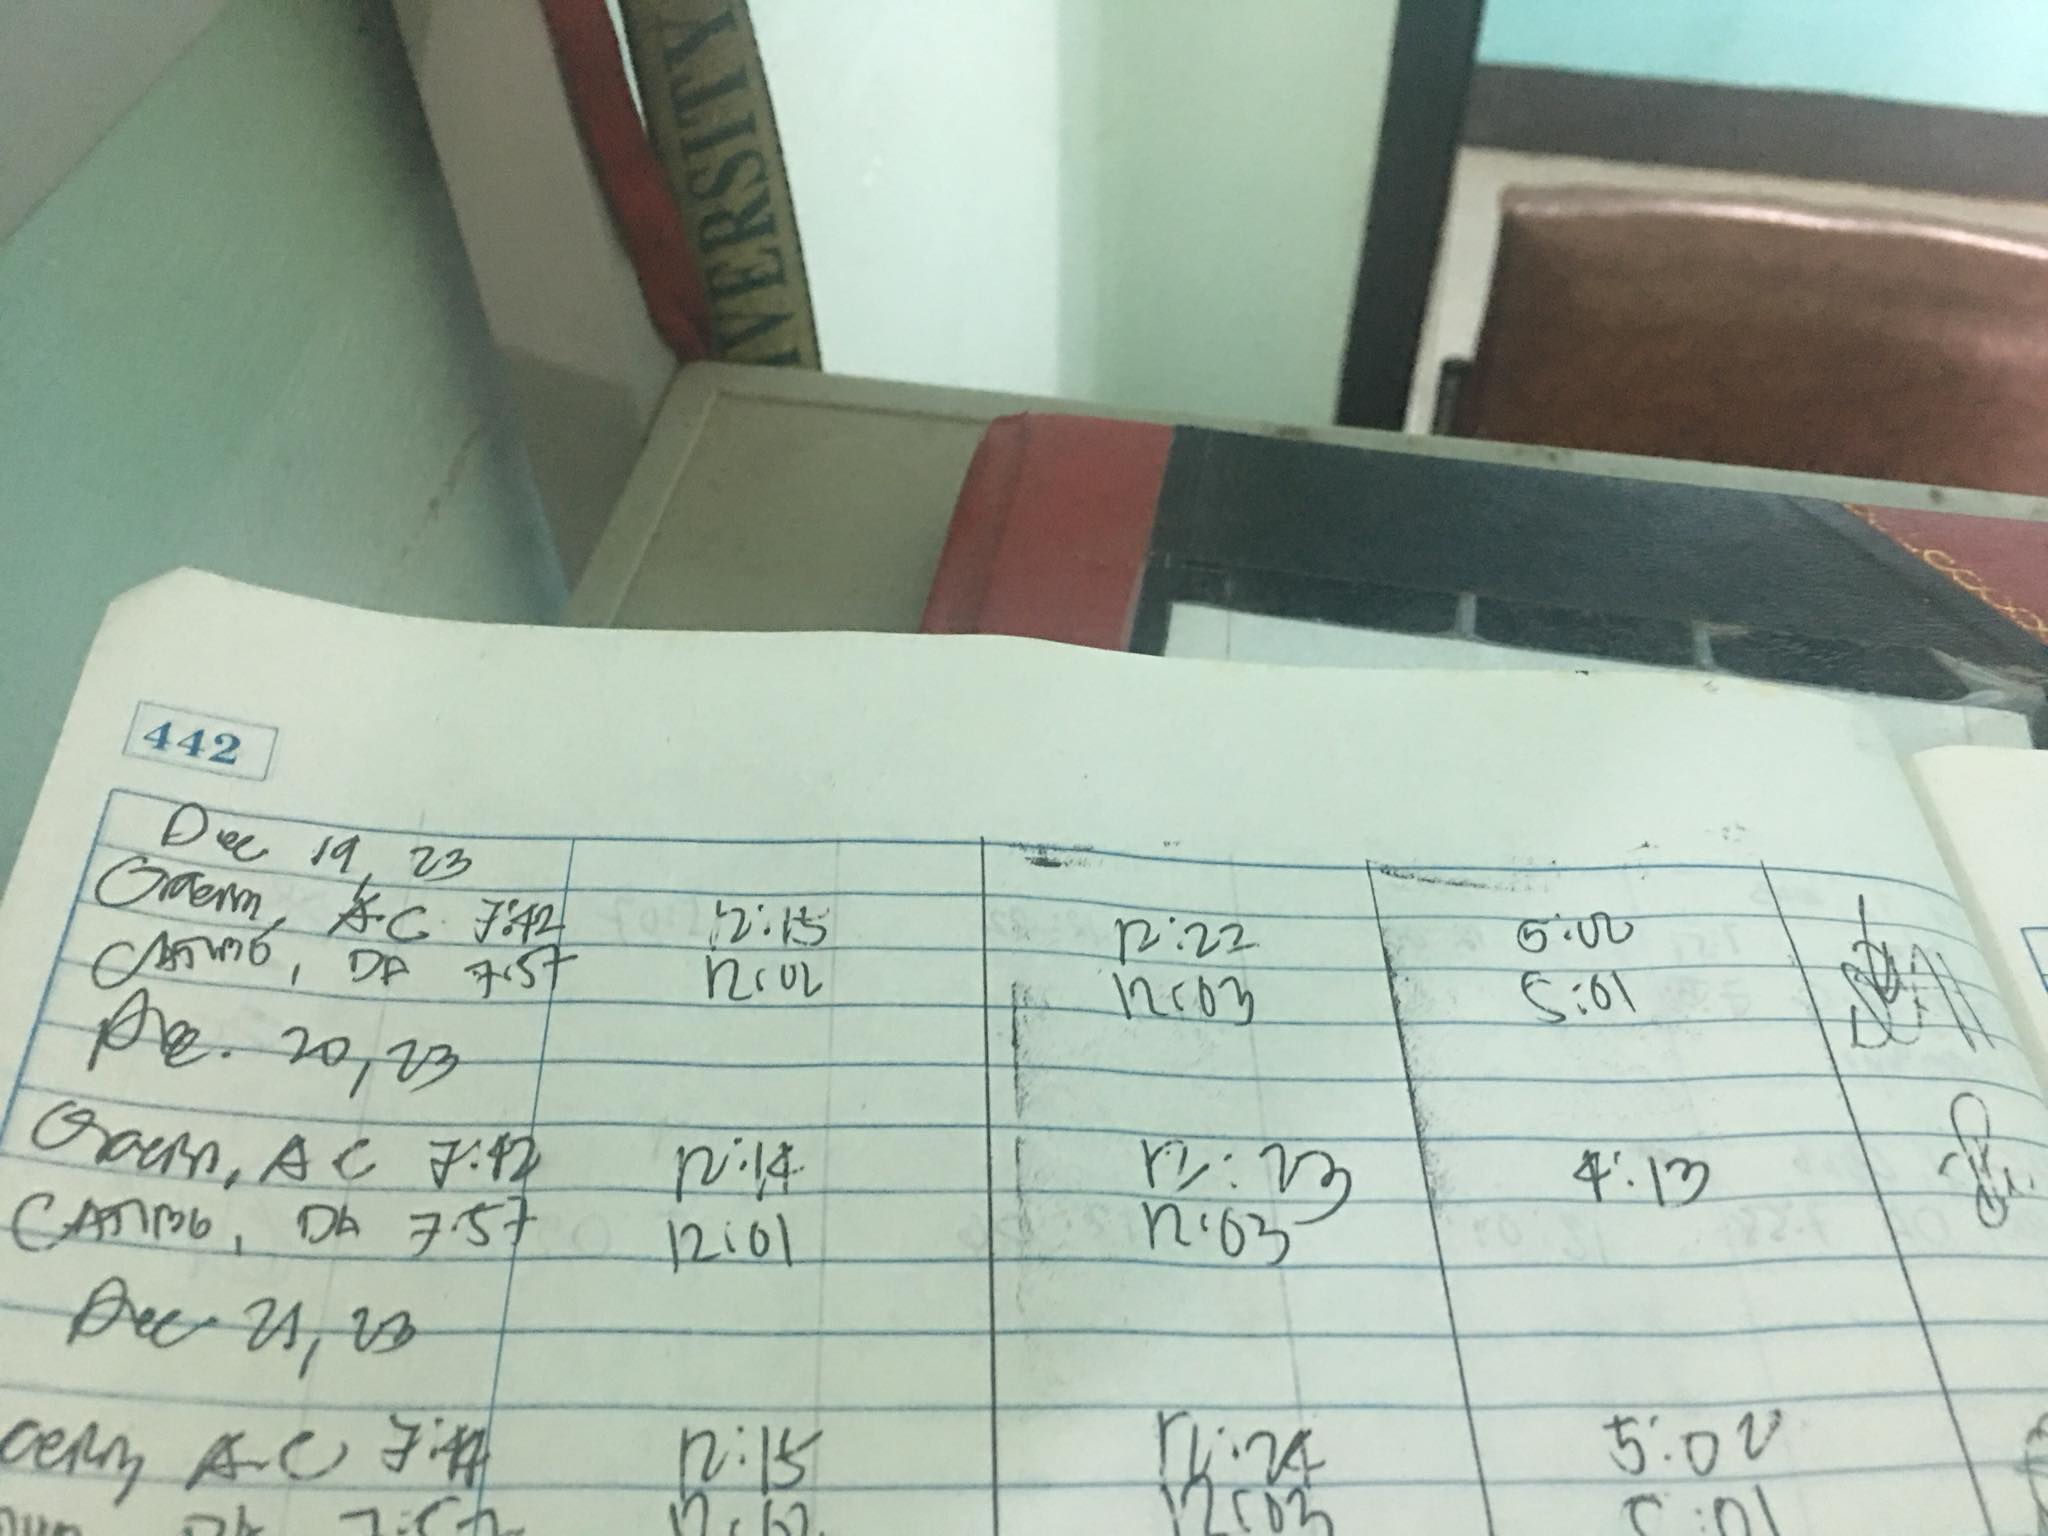 VERSITY
442
Dec 19, 23
A.C 7:42 12:15 12:22 5:02
DA 7:57 12:02 12:03 5:01
Dec. 20, 23
A C 7:42 12:14 12:23 4:13
DA 7:57 12:01 12:03
Dec 21, 23
A.C 12:15 12:24 5:02
12:03 5:01